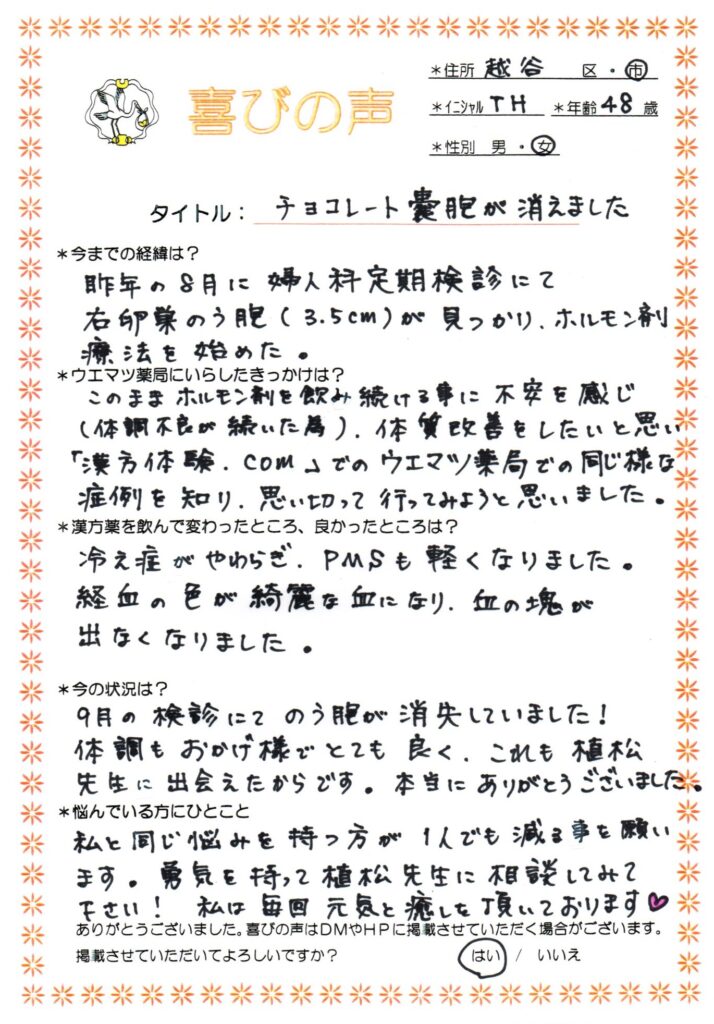 喜びの声
＊住所 越谷 区・市
＊イニシャル TH ＊年齢 48 歳
＊性別 男・女
タイトル： チョコレート嚢胞が消えました
＊今までの経緯は？
昨年の8月に婦人科定期検診にて
右卵巣のう胞(3.5cm)が見つかり、ホルモン剤
療法を始めた。
＊ウエマツ薬局にいらしたきっかけは？
このままホルモン剤を飲み続ける事に不安を感じ
(体調不良が続いた為)、体質改善をしたいと思い
「漢方体験.com」でのウエマツ薬局での同じ様な
症例を知り、思い切って行ってみようと思いました。
＊漢方薬を飲んで変わったところ、良かったところは？
冷え症がやわらぎ、PMSも軽くなりました。
経血の色が綺麗な血になり、血の塊が
出なくなりました。
＊今の状況は？
9月の検診にてのう胞が消失していました！
体調もおかげ様でとても良く、これも植松
先生に出会えたからです。本当にありがとうございました。
＊悩んでいる方にひとこと
私と同じ悩みを持つ方が1人でも減る事を願い
ます。勇気を持って植松先生に相談してみて
下さい！ 私は毎回元気と癒しを頂いております♥
ありがとうございました。喜びの声はDMやHPに掲載させていただく場合がございます。
掲載させていただいてよろしいですか？ はい / いいえ